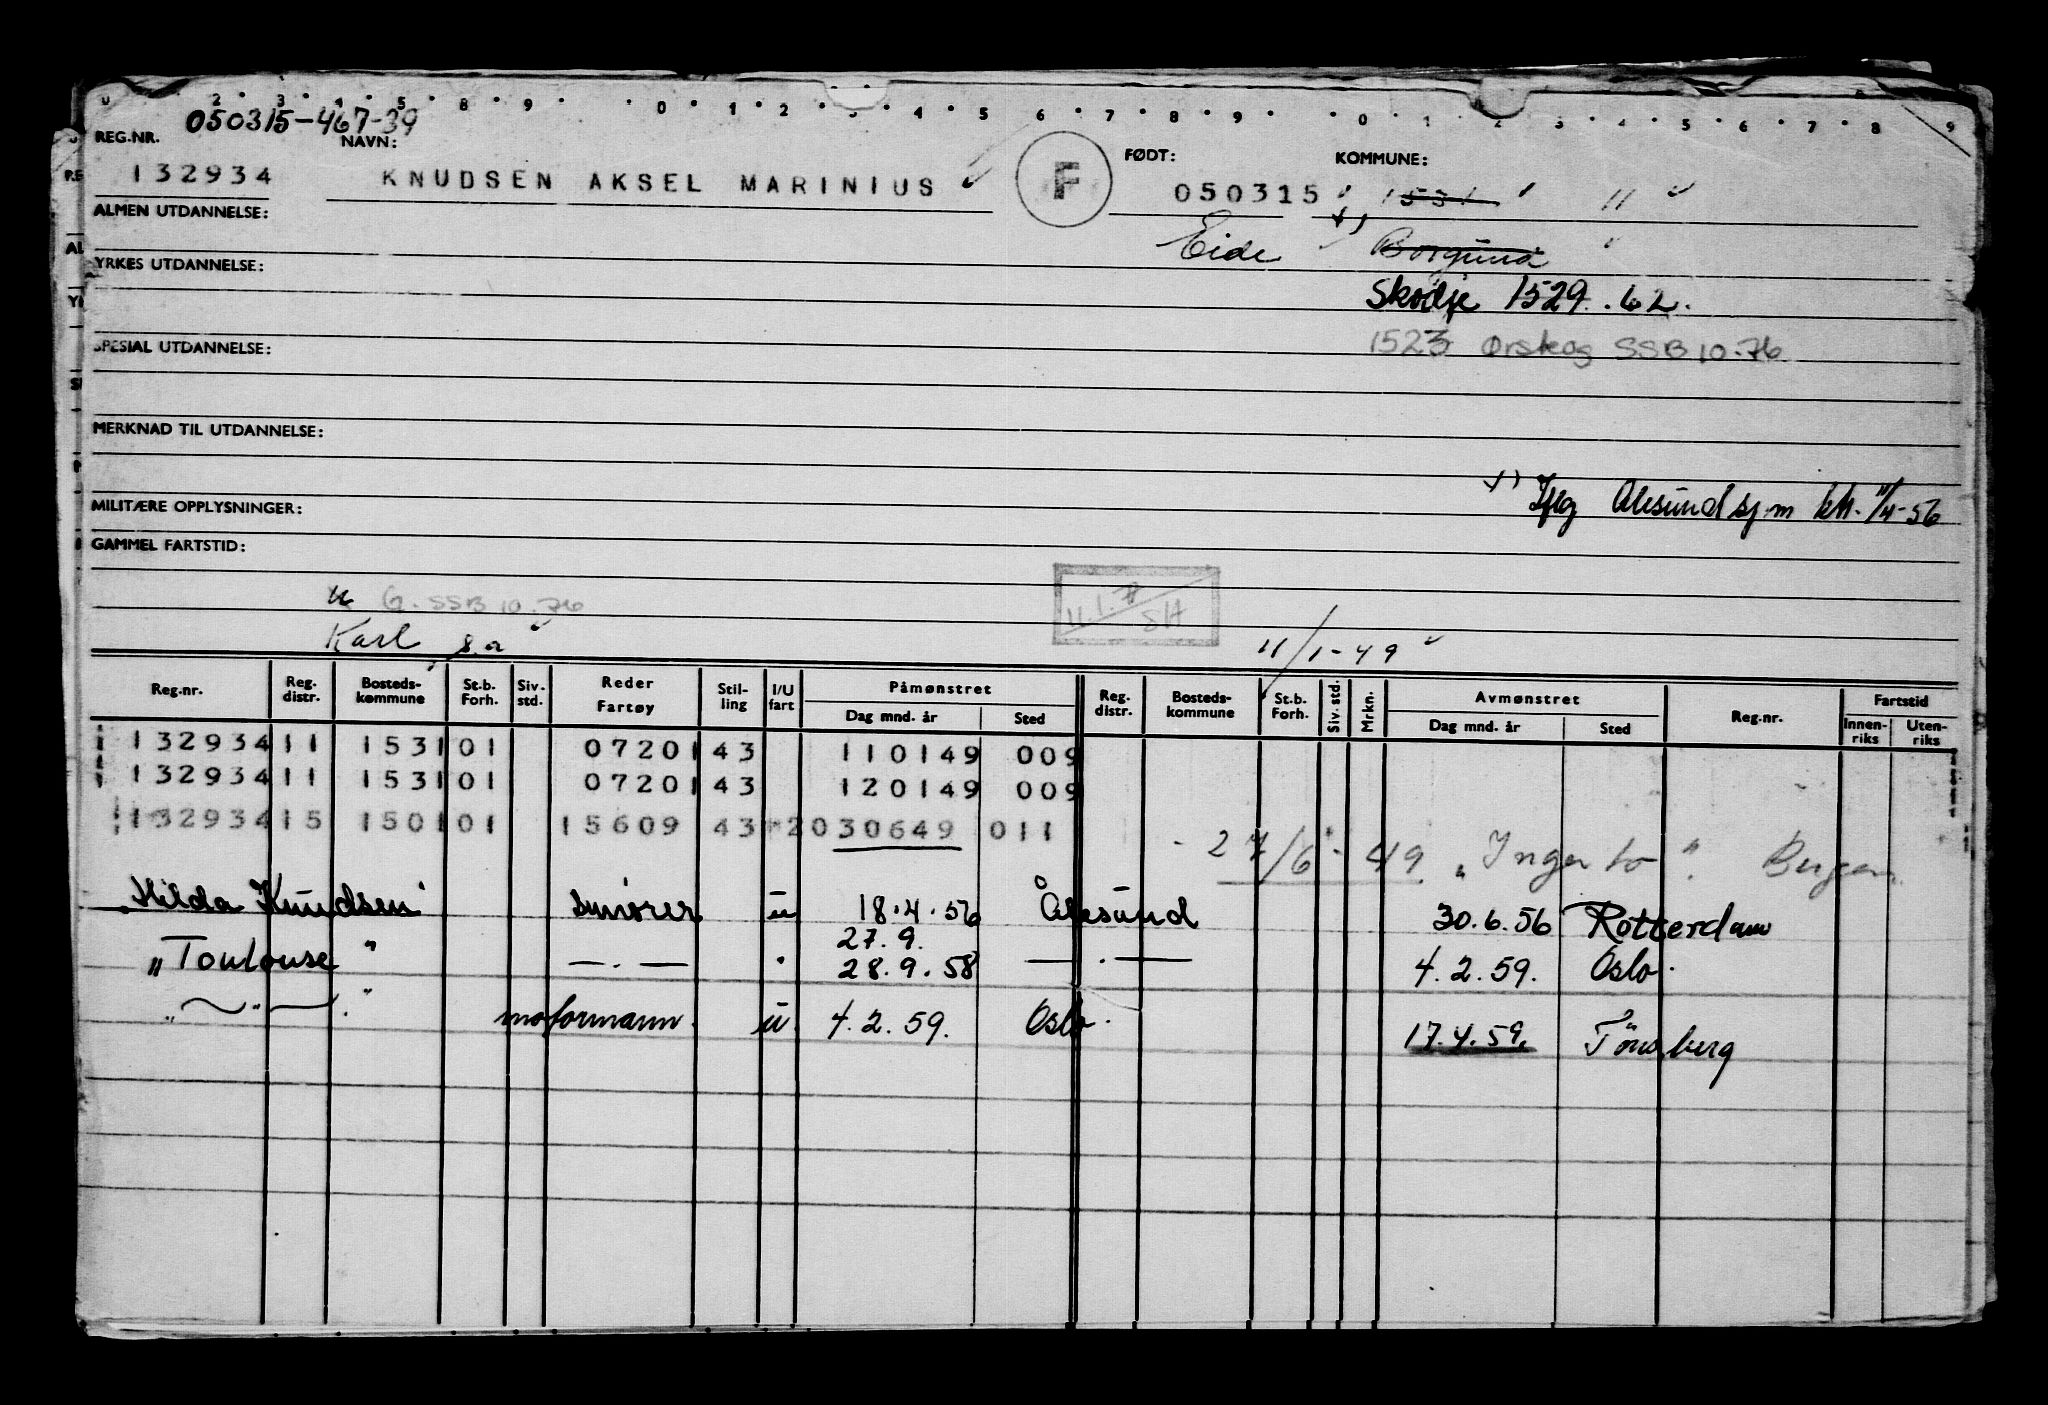 050315-467-39
REG.NR. NAVN: FØDT: KOMMUNE:
132934 KNUDSEN AKSEL MARINIUS F 050315 1531 11
ALMEN UTDANNELSE:
Eide Borgund
YRKES UTDANNELSE:
Skodje 1529. 62.
SPESIAL UTDANNELSE: 1523 Ørskog SSB 10.76
MERKNAD TIL UTDANNELSE:
Iflg Ålesund sj.m. 11/4-56
MILITÆRE OPPLYSNINGER:
GAMMEL FARTSTID:
G. SSB 10.76
Karl s.a 11/1-49
Reg.nr. Reg. distr. Bosteds-kommune St.b. Forh. Siv. std. Reder Fartøy Stil-ling I/U fart Påmønstret Dag mnd. år Sted Reg. distr. Bosteds-kommune St.b. Forh. Siv. std. Mrkn. Avmønstret Dag mnd. år Sted Reg.nr. Fartstid Innen-riks Uten-riks
132934 11 1531 01 07201 43 110149 009
132934 11 1531 01 07201 43 120149 009
132934 15 1501 01 15609 43 2 030649 011
27/6-49 "Ingerto" Bergen
"Hilda Knudsen" smører u 18.4.56 Ålesund 30.6.56 Rotterdam
27.9.
"Toulouse" —.— " 28.9.58 —.— 4.2.59. Oslo.
" — " — " motormann. u. 4.2.59. Oslo. 17.4.59. Tönsberg